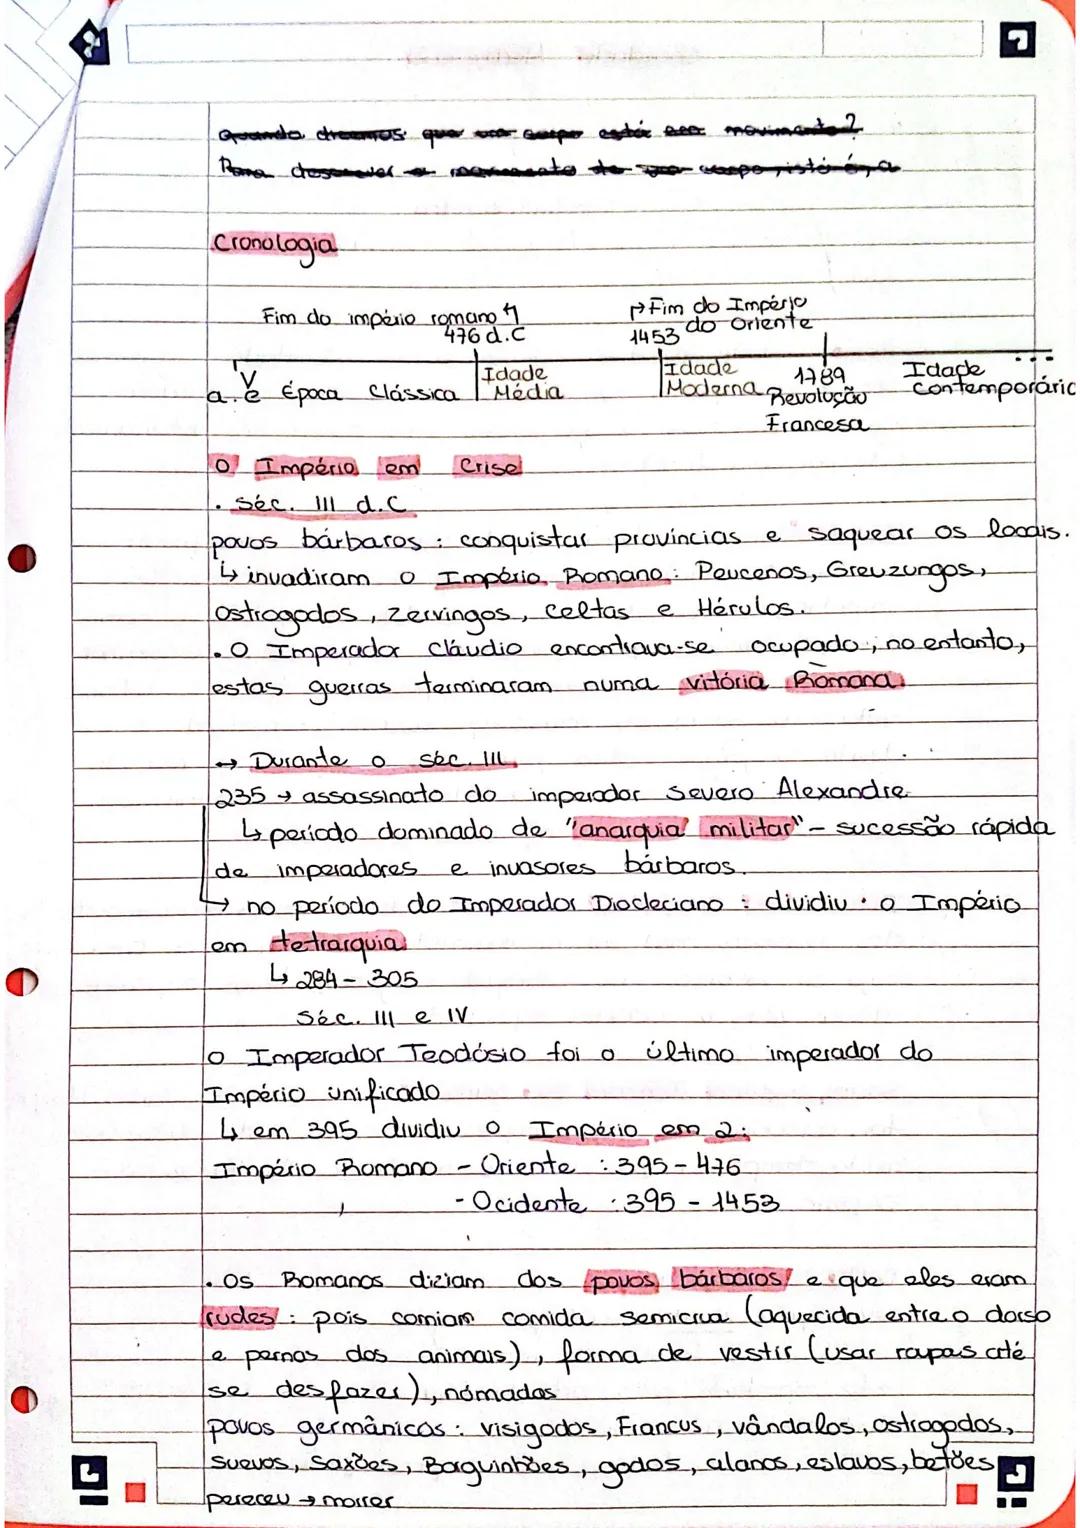 Quando dizemos que um corpo está em movimento?
Para descrever o movimento de um corpo
Cronologia
Fim do império romano
476 d.C
Fim do Império
do Oriente
1453
a.C Época Clássica
Idade
Média
Idade
Moderna
1789
Revolução
Francesa
Idade ...
Contemporânic
O Império em Crise
. séc. III d.C
povos bárbaros : conquistar províncias e saquear os locais.
↳ invadiram o Império Romano : Peucenos, Greuzungos,
Ostrogodos, Zervingos, Celtas e Hérulos.
. O Imperador Cláudio encontrava-se ocupado, no entanto,
estas guerras terminaram numa vitória Romana.
→ Durante o séc. III
235 → assassinato do imperador Severo Alexandre
↳ período dominado de "anarquia militar" - sucessão rápida
de imperadores e invasores bárbaros.
↳ no período do Imperador Diocleciano : dividiu o Império
em tetrarquia
↳ 284 - 305
Séc. III e IV
O Imperador Teodósio foi o último imperador do
Império unificado
↳ em 395 dividiu o Império em 2:
Império Romano - Oriente : 395 - 476
- Ocidente : 395 - 1453
. Os Romanos diziam dos povos bárbaros e que eles eram
rudes : pois comiam comida semicrua (aquecida entre o dorso
e pernas dos animais), forma de vestir (usar roupas até
se desfazer), nómadas
povos germânicos : visigodos, Francus, vândalos, ostrogodos,
suevos, saxões, Barguinhões, godos, alanos, eslavos, betões
pereceu → morrer